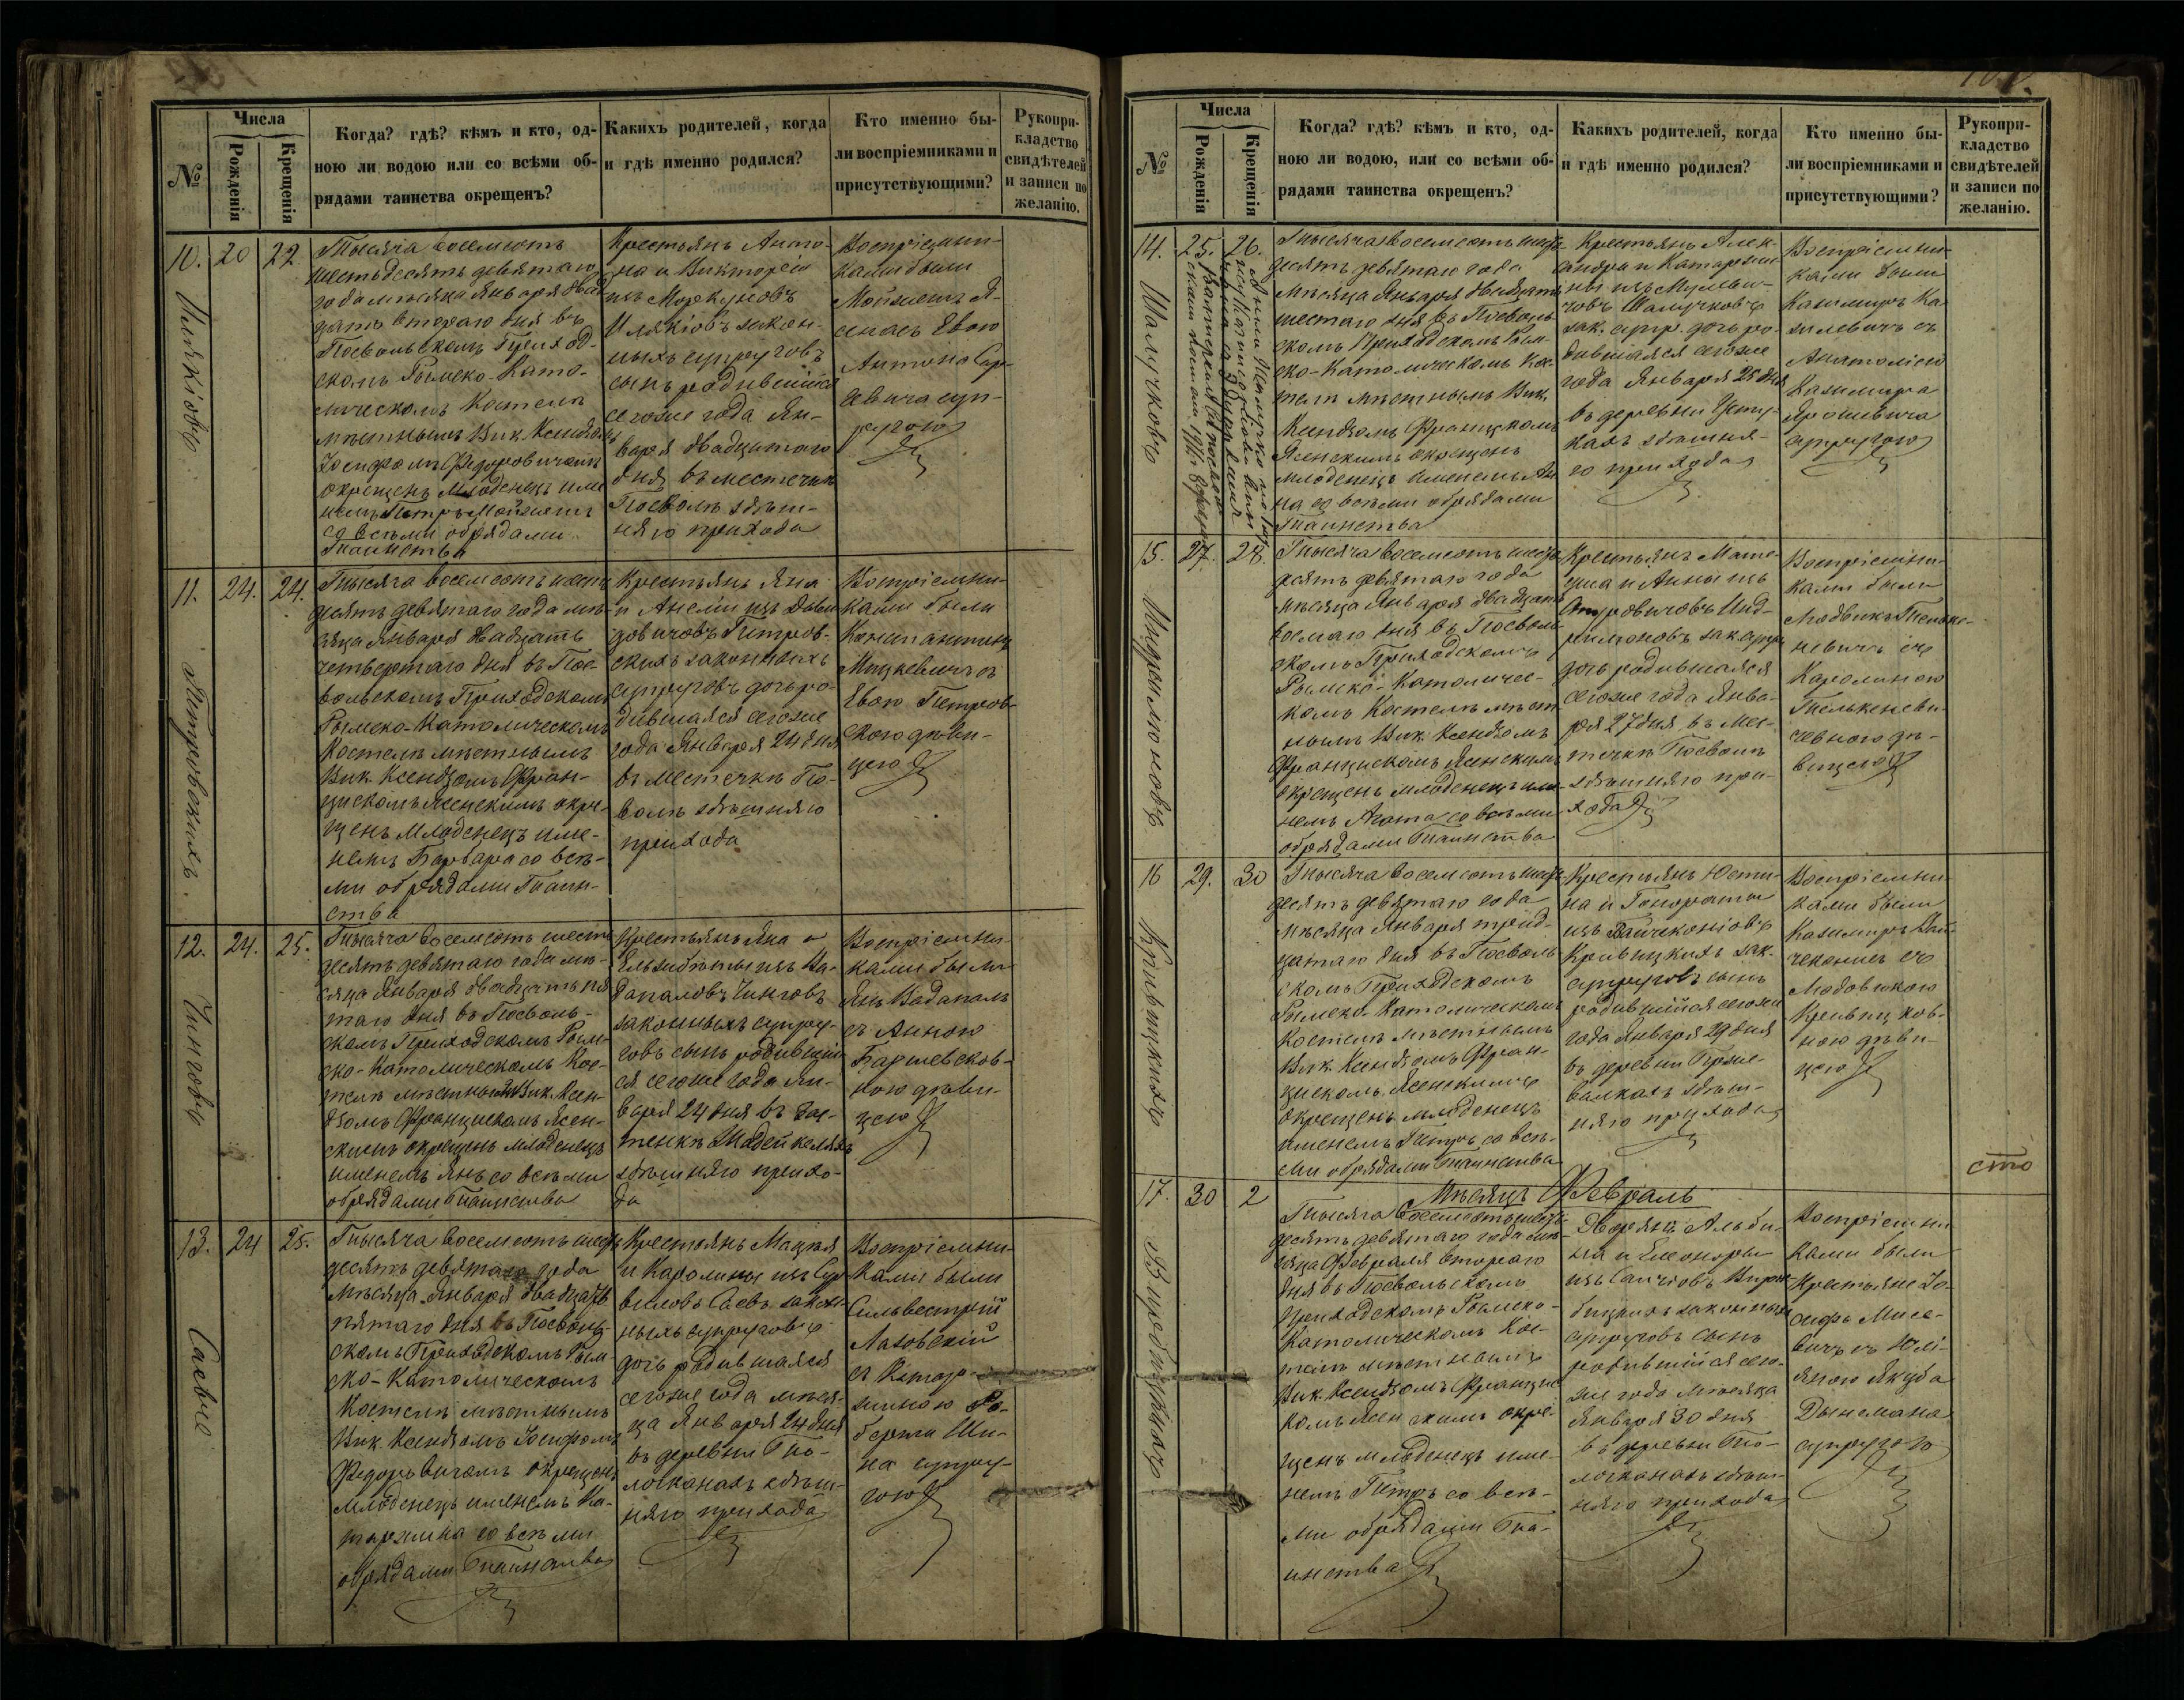 №
Числа
Рожденія
Крещенія
Когда? гдѣ? кѣмъ и кто, од-
ною ли водою или со всѣми об-
рядами таинства окрещенъ?
Какихъ родителей, когда
и гдѣ именно родился?
Кто именно бы-
ли воспріемниками и
присутствующими?
Рукопри-
кладство
свидѣтелей
и записи по
желанію.
10.
20
22
Тысяча восемсотъ
шестьдесятъ девятаго
года мѣсяца Января двад
цать втораго дня въ
Посвольскомъ Приход-
скомъ Римско-Като-
лическомъ Костелѣ
мѣстнымъ Вик. Ксендзомъ
Іосифомъ Федоровичемъ
окрещенъ младенецъ име
немъ
со всѣми обрядами
Таинства
Крестьянъ Анто-
на и Викторіи
изъ Моркуновъ
закон-
ныхъ супруговъ
сынъ родившійся
сегоже года Ян-
варя двадцатаго
дня въ местечкѣ
Посволѣ здѣш-
няго прихода
Воспріемни-
ками были
Евою
Антона
суп-
ругою
11.
24.
24.
Петровскихъ
Тысяча восемсотъ шесть
десятъ девятаго года мѣ-
сяца Января двадцать
четвертаго дня въ Пос-
вольскомъ Приходскомъ
Римско-Католическомъ
Костелѣ мѣстнымъ
Вик. Ксендзомъ Фран-
цискомъ Ясенскимъ окре-
щенъ младенецъ име-
немъ Барбара со всѣ-
ми обрядами Таин-
ства
Крестьянъ Яна
и Анеліи изъ Дави
довичовъ Петров-
скихъ законныхъ
супруговъ дочь ро-
дившаяся сегоже
года Января 24 дня
въ местечкѣ По-
волѣ здѣшняго
прихода
Воспріемни-
ками были
Константинъ
Мицкевичъ съ
Евою Петров-
скою дѣви-
цею
12.
24.
25.
Чинговъ
Тысяча восемсотъ шесть
десятъ девятаго года мѣ-
сяца Января двадцать пя
таго дня въ Посволь-
скомъ Приходскомъ Рим-
ско-Католическомъ Кос-
телѣ мѣстнымъ Вик. Ксен-
дзомъ Францискомъ Ясен-
скимъ окрещенъ младенецъ
именемъ Янъ со всѣми
обрядами Таинства
Крестьянъ Яна и
Ельзибеты изъ Ва-
дапаловъ Чинговъ
законныхъ супру-
говъ сынъ родившій
ся сегоже года Ян-
варя 24 дня въ
здѣшняго прихо-
да
Воспріемни-
ками были
Янъ Вадапалъ
съ Анною
дѣви-
цею
13.
24
25.
Тысяча восемсотъ шесть
десятъ девятаго года
мѣсяца Января двадцать
пятаго дня въ Посволь-
скомъ Приходскомъ Рим-
ско-Католическомъ
Костелѣ мѣстнымъ
Вик. Ксендзомъ Іосифомъ
Федоровичемъ окрещенъ
младенецъ именемъ Ка-
таржина со всѣми
обрядами Таинства
Крестьянъ Мацея
и Каролины изъ
закон-
ныхъ супруговъ
дочь родившаяся
сегоже года мѣся-
ца Января 24 дня
въ деревни
здѣш-
няго прихода
Воспріемни-
ками были
Сильвестрій
Лазовскій
съ Катар-
жиною Ро-
берта
супру-
гою
№
Числа
Рожденія
Крещенія
Когда? гдѣ? кѣмъ и кто, од-
ною ли водою, или со всѣми об-
рядами таинства окрещенъ?
Какихъ родителей, когда
и гдѣ именно родился?
Кто именно бы-
ли воспріемниками и
присутствующими?
Рукопри-
кладство
свидѣтелей
и записи по
желанію.
14.
25.
26.
Шалучковъ
Тысяча восемсотъ шесть
десятъ девятаго года
мѣсяца Января двадцать
шестаго дня въ Посволь-
скомъ Приходскомъ Рим-
ско-Католическомъ Кос-
телѣ мѣстнымъ Вик.
Ксендзомъ Францискомъ
Ясенскимъ окрещенъ
младенецъ именемъ Ан
на со всѣми обрядами
Таинства
Крестьянъ Алек-
сандра и Катаржи-
ны изъ
Шалучковъ
зак. супр. дочь ро-
дившаяся сегоже
года Января 25 дня
въ деревни
здѣшня-
го прихода
Воспріемни-
ками были
Казимиръ Ка
зилевичъ съ
Анатоліею
Казимира
Ярошевича
супругою
15.
27.
28.
Индрилюновъ
Тысяча восемсотъ шесть
десятъ девятаго года
мѣсяца Января двадцать
восмаго дня въ Посволь-
скомъ Приходскомъ
Римско-Католичес-
комъ Костелѣ мѣст
нымъ Вик. Ксендзомъ
Францискомъ Ясенскимъ
окрещенъ младенецъ име-
немъ Агота со всѣми
обрядами Таинства
Крестьянъ Мате-
уша и Анны изъ
зак. супр.
дочь родившаяся
сегоже года Янва-
ря 27 дня въ мес-
течкѣ Посволѣ
здѣшняго при-
хода
Воспріемни-
ками были
съ
Каролиною
дѣ-
вицею
16
29.
30
Кривицкихъ
Тысяча восемсотъ шесть
десятъ девятаго года
мѣсяца Января трид-
цатаго дня въ Посволь
скомъ Приходскомъ
Римско-Католическомъ
Костелѣ мѣстнымъ
Вик. Ксендзомъ Фран-
цискомъ Ясенскимъ
окрещенъ младенецъ
именемъ Петръ со всѣ-
ми обрядами Таинства
Крестьянъ Юсти-
на и Гонораты
изъ Вайчеконіовъ
Кривицкихъ зак.
супруговъ сынъ
родившійся сегоже
года Января 29 дня
въ деревни
здѣш-
няго прихода
Воспріемни-
ками были
Казимиръ Вай-
чеконисъ съ
Людовикою
Кривицков-
ною дѣви-
цею
сто
Мѣсяцъ Февраль
17.
30
2
Тысяча восемсотъ шесть-
десятъ девятаго года мѣ-
сяца Февраля втораго
дня въ Посвольскомъ
Приходскомъ Римско-
Католическомъ Кос-
телѣ мѣстнымъ
Вик. Ксендзомъ Францис
комъ Ясенскимъ окре-
щенъ младенецъ име-
немъ Петръ со всѣ-
ми обрядами Та-
инства
Дворянъ Альби-
на и Елеоноры
законныхъ
супруговъ сынъ
родившійся сего-
же года мѣсяца
Января 30 дня
въ деревни
здѣш-
няго прихода
Воспріемни
ками были
Крестьяне Іо-
сифъ
съ Юлі-
яною Якуба
Дынсмана
супругою